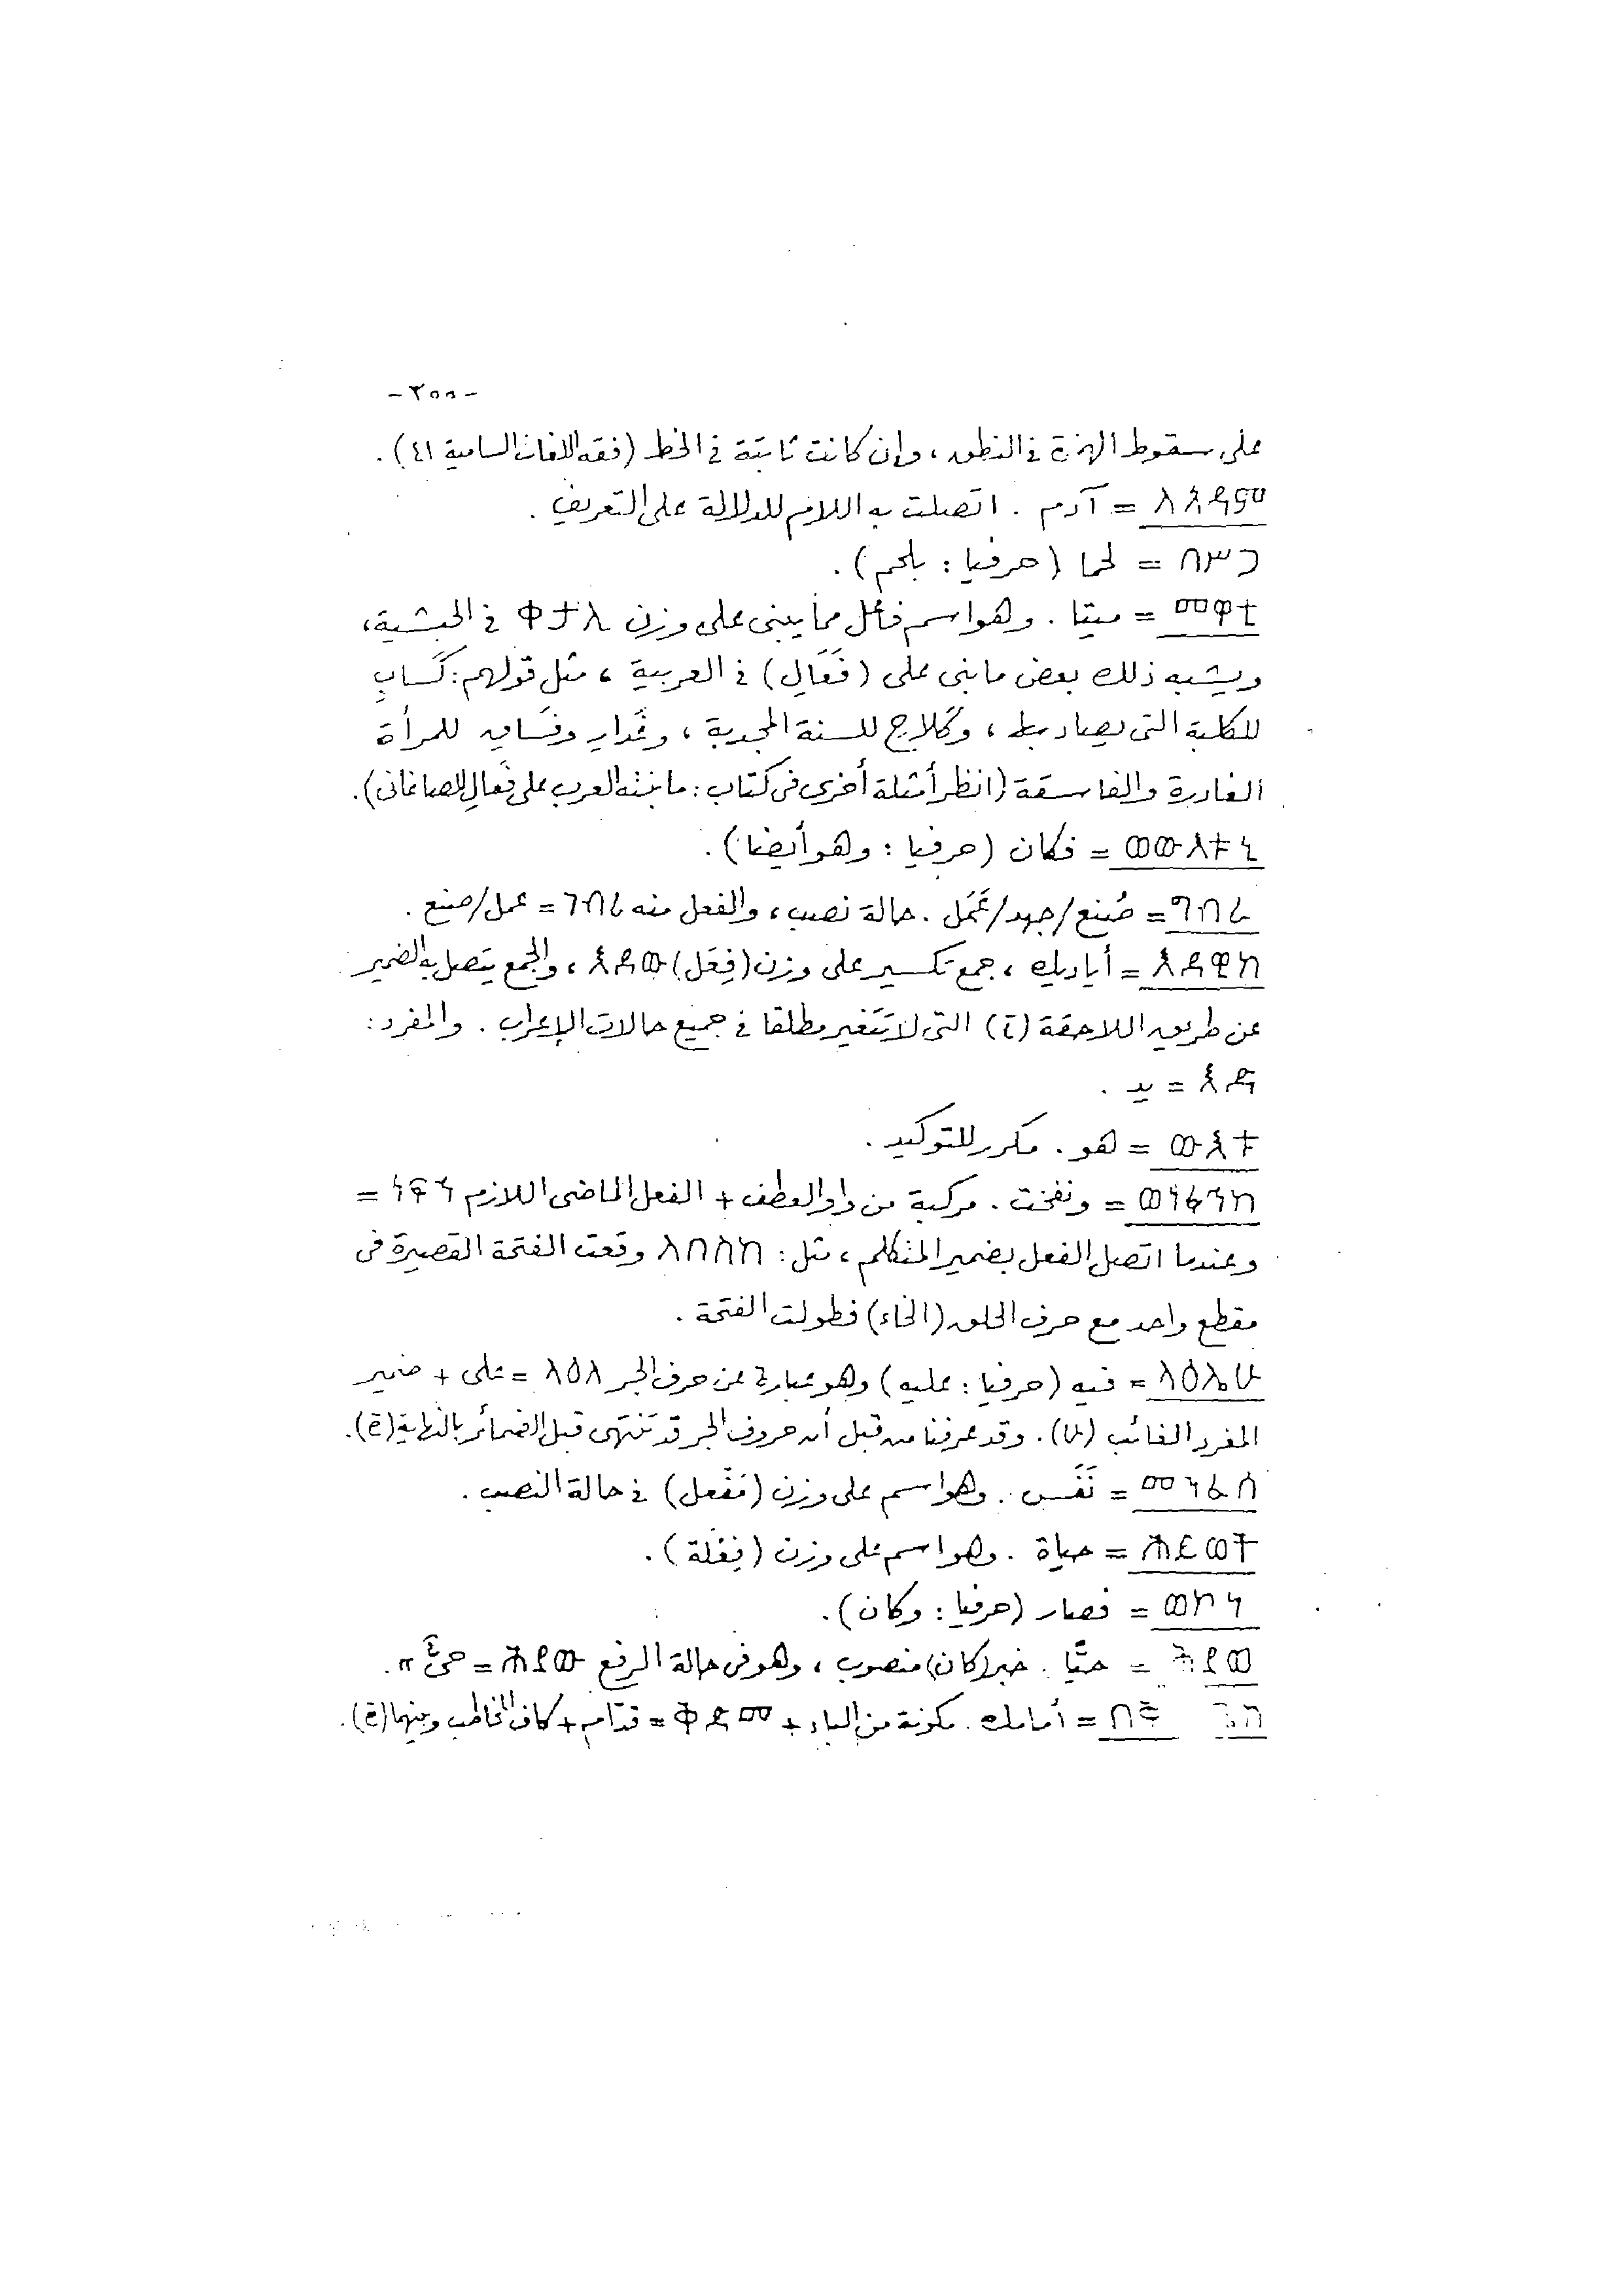 - ٢٥٥ -
على سقوط الهمزة فى النطق ، وإن كانت ثابتة فى الخط (فقه اللغات السامية ٤١) .
= آدم . اتصلت به اللام للدلالة على التعريف .
= لحما (حرفيا : بلحم) .
= ميتا . وهو اسم فاعل مما يبنى على وزن ቀታል فى الحبشية ،
ويشبه ذلك بعض ما بنى على (فَعَالِ) فى العربية ، مثل قولهم : كَسَابِ
للكلبة التى يصاد بها ، وكَلاحِ للسنة المجدبة ، وغَدارِ وفَساقِ للمرأة
الغادرة والفاسقة (انظر أمثلة أخرى فى كتاب : ما بنته العرب على فَعالِ للصاغانى) .
= فكان (حرفيا : وهو أيضا) .
= صُنع/جهد/عَمَل . حالة نصب ، والفعل منه ገብረ = عمل/صنع .
= أياديك ، جمع تكسير على وزن (فِعَل) እደው ، والجمع يتصل به الضمير
عن طريق اللاحقة التى لا تتغير مطلقا فى جميع حالات الإعراب . والمفرد :
እድ = يد .
ውእቱ = هو . مكرر للتوكيد .
= ونفخت . مركبة من واو العطف + الفعل الماضى اللازم ነፍኀ =
وعندما اتصل الفعل بضمير المتكلم ، مثل : وقعت الفتحة القصيرة فى
مقطع واحد مع حرف الحلق (الخاء) فطولت الفتحة .
ላዕሌሁ = فيه (حرفيا : عليه) وهو عبارة عن حرف الجر ላዕለ = على + ضمير
المفرد الغائب (ሁ) . وقد عرفنا من قبل أن حروف الجر قد تنتهى قبل الضمائر بالنهاية
መንፈሰ = نَفَس . وهو اسم على وزن (مَفْعل) فى حالة النصب .
ሕይወት = حياة . وهو اسم على وزن (فِعْلة) .
ወኮነ = فصار (حرفيا : وكان) .
= حيًّا . خبر (كان) منصوب ، وهو فى حالة الرفع ሕያው = حىٌّ .
= أمامك . مكونة من الباء + ቅድመ = قدّام + كاف المخاطب وبينهما